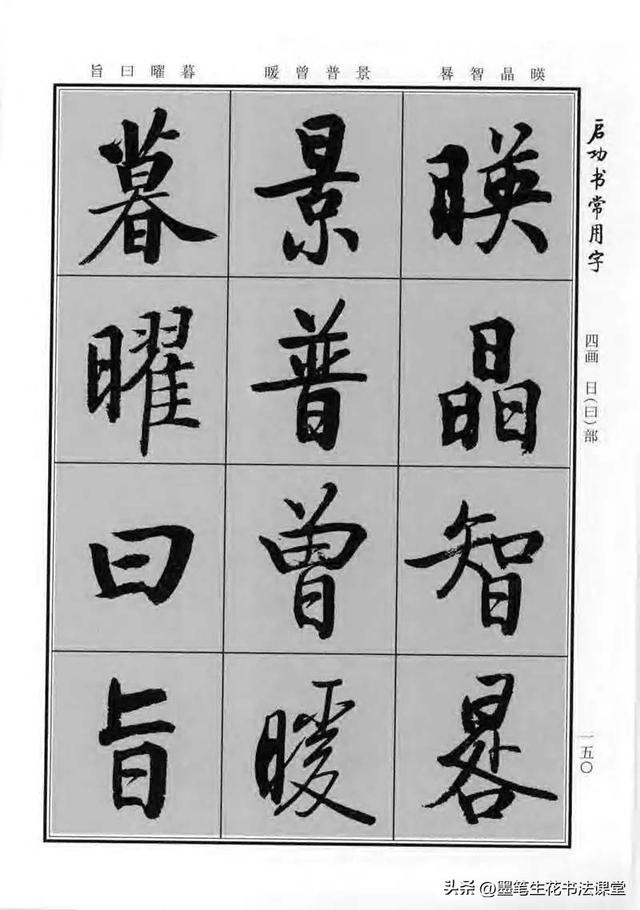 启功书常用字
四画 日(曰)部
一五〇
暎晶智晷 景普曾暖 暮曜曰旨
暎晶智晷
景普曾暖
暮曜曰旨
头条 @墨笔生花书法课堂